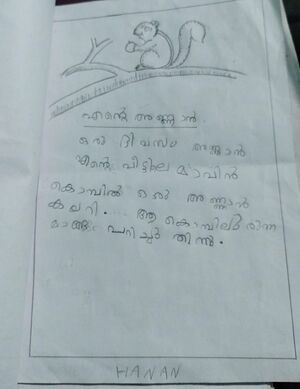 എന്റെ അണ്ണാൻ
ഒരു ദിവസം ഞാൻ
എന്റെ വീട്ടിലെ മാവിൻ
കൊമ്പിൽ ഒരു അണ്ണാൻ
കയറി. ... ആ കൊമ്പിലിരുന്ന
മാങ്ങ പറിച്ചു തിന്നു.
HANAN